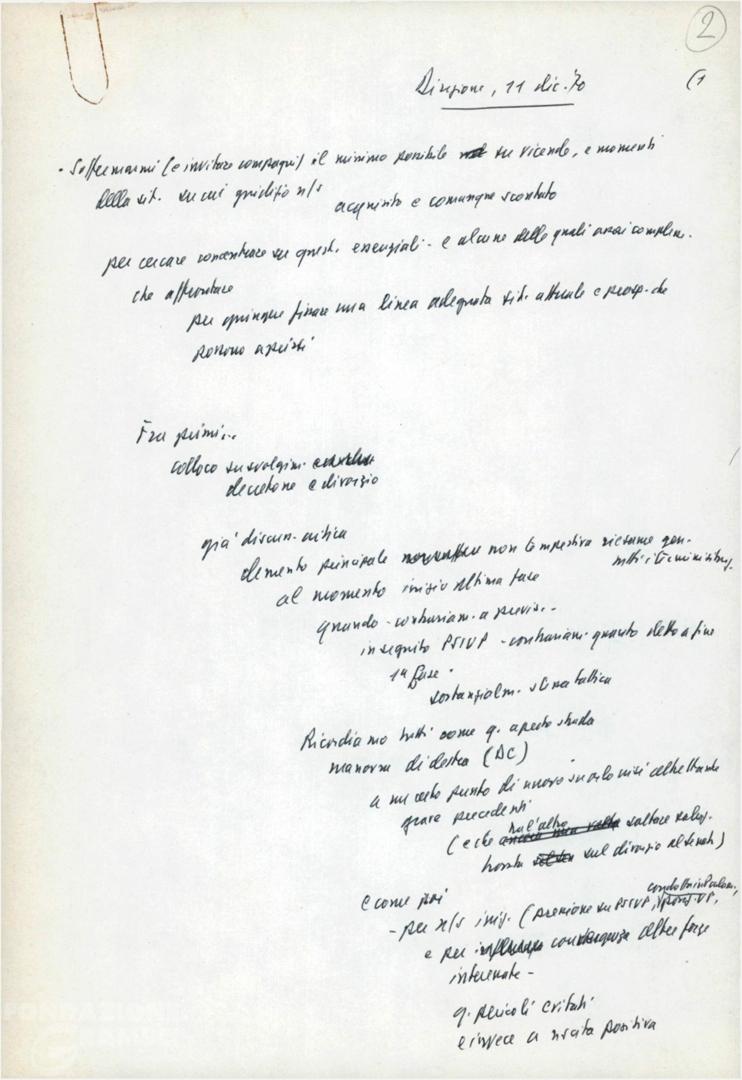 2
Direzione, 11 dic. '70
(1
- Soffermarmi (e invitare compagni) il minimo possibile su vicende, e momenti
della sit. su cui giudizio n/s
acquisito e comunque scontato
per cercare concentrare su quest. essenziali - e alcune delle quali assai compless.
che affrontare
per giungere fissare una linea adeguata sit. attuale e prosp. che
possono aprirsi
Fra primi..
colloco su svolgim.
decretone e divorzio
già discuss. critica
elemento principale non tempestiva riesame gen.
al momento inizio ultima fase
quando - contrariam. a previs. -
in seguito PSIUP - contrariam. quanto detto a fine
1ª fase -
sostanzialm. s'era tattica
Ricordiamo tutti come q. aperto strada
manovra di destra (DC)
a un certo punto di nuovo su orlo crisi altrettanto
grave precedenti
(e che sull'altro
sul divorzio al Senato)
e come poi
- per n/s iniz. (pressione su PSIUP,
e per convergenza altre forze
interessate -
q. pericoli evitati
e invece a uscita positiva
FONDAZIONE